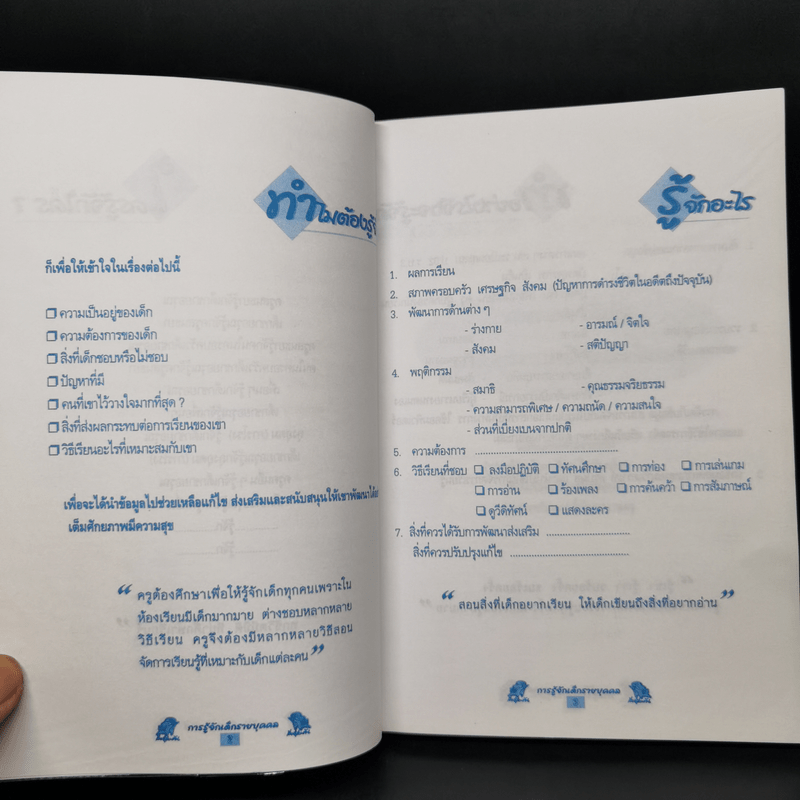 ทำไมต้องรู้จั
ก็เพื่อให้เข้าใจในเรื่องต่อไปนี้
❒ ความเป็นอยู่ของเด็ก
❒ ความต้องการของเด็ก
❒ สิ่งที่เด็กชอบหรือไม่ชอบ
❒ ปัญหาที่มี
❒ คนที่เขาไว้วางใจมากที่สุด ?
❒ สิ่งที่ส่งผลกระทบต่อการเรียนของเขา
❒ วิธีเรียนอะไรที่เหมาะสมกับเขา
เพื่อจะได้นำข้อมูลไปช่วยเหลือแก้ไข ส่งเสริมและสนับสนุนให้เขาพัฒนาได้
เต็มศักยภาพมีความสุข
“ ครูต้องศึกษาเพื่อให้รู้จักเด็กทุกคนเพราะใน
ห้องเรียนมีเด็กมากมาย ต่างชอบหลากหลาย
วิธีเรียน ครูจึงต้องมีหลากหลายวิธีสอน
จัดการเรียนรู้ที่เหมาะกับเด็กแต่ละคน ”
การรู้จักเด็กรายบุคคล
รู้จักอะไร
1. ผลการเรียน
2. สภาพครอบครัว เศรษฐกิจ สังคม (ปัญหาการดำรงชีวิตในอดีตถึงปัจจุบัน)
3. พัฒนาการด้านต่าง ๆ
- ร่างกาย - อารมณ์ / จิตใจ
- สังคม - สติปัญญา
4. พฤติกรรม
- สมาธิ - คุณธรรมจริยธรรม
- ความสามารถพิเศษ / ความถนัด / ความสนใจ
- ส่วนที่เบี่ยงเบนจากปกติ
5. ความต้องการ ..............................................
6. วิธีเรียนที่ชอบ ❒ ลงมือปฏิบัติ ❒ ทัศนศึกษา ❒ การท่อง ❒ การเล่นเกม
❒ การอ่าน ❒ ร้องเพลง ❒ การค้นคว้า ❒ การสัมภาษณ์
❒ ดูวีดิทัศน์ ❒ แสดงละคร
7. สิ่งที่ควรได้รับการพัฒนาส่งเสริม ..........................
สิ่งที่ควรปรับปรุงแก้ไข ......................................
“ สอนสิ่งที่เด็กอยากเรียน ให้เด็กเขียนถึงสิ่งที่อยากอ่าน ”
การรู้จักเด็กรายบุคคล